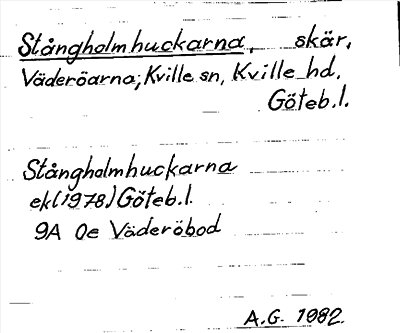 Stångholmhuckarna, skär,
Väderöarna, Kville sn, Kville hd.
Göteb.l.
Stångholmhuckarna
ekl(1978) Göteb.l.
9A 0e Väderöbod
A.G. 1982.